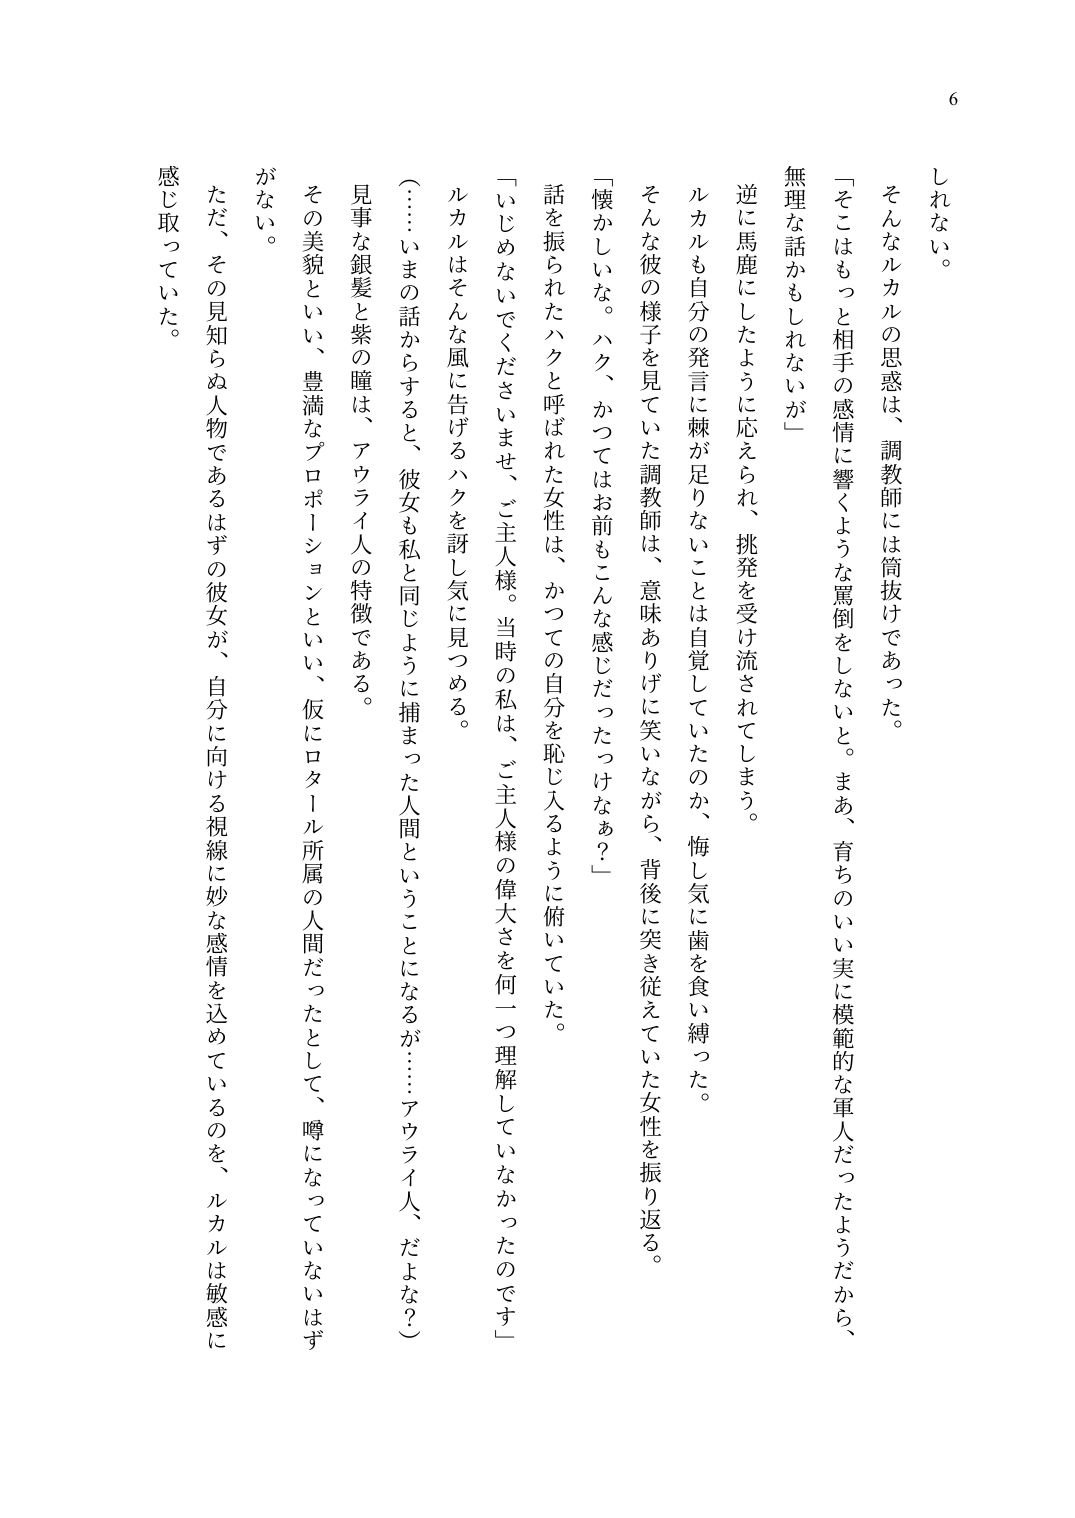 6
しれない。
そんなルカルの思惑は、調教師には筒抜けであった。
「そこはもっと相手の感情に響くような罵倒をしないと。まあ、育ちのいい実に模範的な軍人だったようだから、
無理な話かもしれないが」
逆に馬鹿にしたように応えられ、挑発を受け流されてしまう。
ルカルも自分の発言に棘が足りないことは自覚していたのか、悔し気に歯を食い縛った。
そんな彼の様子を見ていた調教師は、意味ありげに笑いながら、背後に突き従えていた女性を振り返る。
「懐かしいな。ハク、かつてはお前もこんな感じだったっけなぁ？」
話を振られたハクと呼ばれた女性は、かつての自分を恥じ入るように俯いていた。
「いじめないでくださいませ、ご主人様。当時の私は、ご主人様の偉大さを何一つ理解していなかったのです」
ルカルはそんな風に告げるハクを訝し気に見つめる。
（……いまの話からすると、彼女も私と同じように捕まった人間ということになるが……アウライ人、だよな？）
見事な銀髪と紫の瞳は、アウライ人の特徴である。
その美貌といい、豊満なプロポーションといい、仮にロタール所属の人間だったとして、噂になっていないはず
がない。
ただ、その見知らぬ人物であるはずの彼女が、自分に向ける視線に妙な感情を込めているのを、ルカルは敏感に
感じ取っていた。